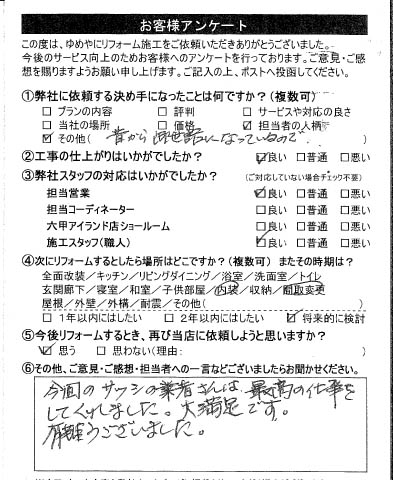 お客様アンケート
この度は、ゆめやにリフォーム施工をご依頼いただきありがとうございました。
今後のサービス向上のためお客様へのアンケートを行っております。ご意見・ご感
想を賜りますようお願い申し上げます。ご記入の上、ポストへ投函してください。
①弊社に依頼する決め手になったことは何ですか？（複数可）
□ プランの内容 □ 評判 □ サービスや対応の良さ
□ 当社の場所 □ 価格 ☑ 担当者の人柄
☑ その他( 昔から御世話になっているので )
②工事の仕上がりはいかがでしたか？ ☑良い □普通 □悪い
③弊社スタッフの対応はいかがでしたか？ (ご対応していない場合チェック不要)
担当営業 ☑良い □普通 □悪い
担当コーディネーター □良い □普通 □悪い
六甲アイランド店ショールーム □良い □普通 □悪い
施工スタッフ(職人) ☑良い □普通 □悪い
④次にリフォームするとしたら場所はどこですか？(複数可) またその時期は？
全面改装／キッチン／リビングダイニング／浴室／洗面室／トイレ
玄関廊下／寝室／和室／子供部屋／内装／収納／間取変更
屋根／外壁／外構／耐震／その他( )
□ 1年以内にはしたい □ 2年以内にはしたい ☑ 将来的に検討
⑤今後リフォームするとき、再び当店に依頼しようと思いますか？
☑ 思う □ 思わない(理由： )
⑥その他、ご意見・ご感想・担当者への一言などございましたらお聞かせください。
今回のサッシの業者さんは、最高の仕事を
してくれました。大満足です。
有難うございました。